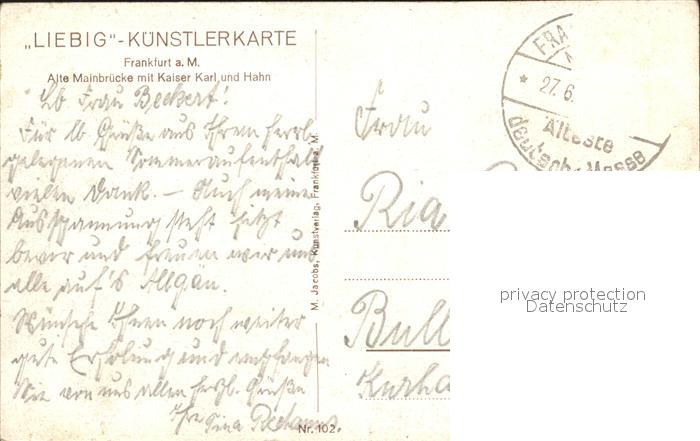 „LIEBIG"-KÜNSTLERKARTE
Frankfurt a. M.
Alte Mainbrücke mit Kaiser Karl und Hahn
Lb Frau Beckert!
Für lb Grüße aus Ihrem herrl.
gelegenen Sommeraufenthalt
vielen Dank. – Auch meine
Ausspannung steht jetzt
bevor und freuen wir uns
alle auf's Allgäu.
Wünsche Ihnen noch weiter
gute Erholung und empfangen
Sie von uns allen herzl. Grüße
Ihre Tina
Nr. 102.
M. Jacobs, Kunstverlag, Frankfurt a. M.
FRA
27.6.
Älteste
deutsche Messe
Frau
Ria
Bull
Kurha
privacy protection
Datenschutz